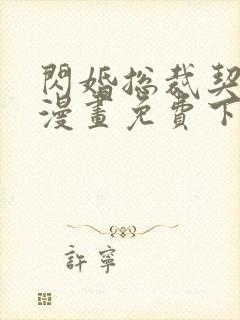 閃婚總裁契
漫畫免費下
許寧